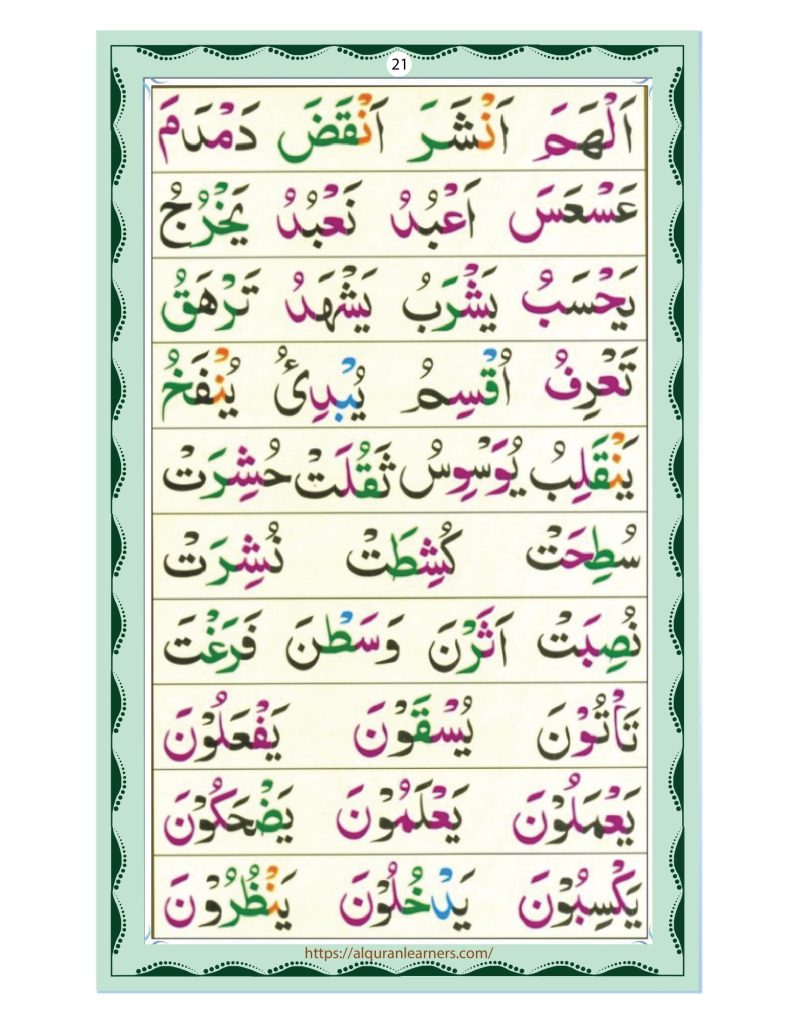 21
اَلْهَمَ اَنْشَرَ اَنْقَضَ دَمْدَمَ
عَسْعَسَ اَعْبُدُ نَعْبُدُ يَخْرُجُ
يَحْسَبُ يَشْرَبُ يَشْهَدُ تَرْهَقُ
تَعْرِفُ اُقْسِمُ يُبْدِئُ يُنْفَخُ
يَنْقَلِبُ يُوَسْوِسُ ثَقُلَتْ حُشِرَتْ
سُطِحَتْ كُشِطَتْ نُشِرَتْ
نُصِبَتْ اَثَرْنَ وَسَطْنَ فَرَغْتَ
تَأْتُوْنَ يُسْقَوْنَ يَفْعَلُوْنَ
يَعْمَلُوْنَ يَعْلَمُوْنَ يَضْحَكُوْنَ
يَكْسِبُوْنَ يَدْخُلُوْنَ يَنْظُرُوْنَ
https://alquranlearners.com/